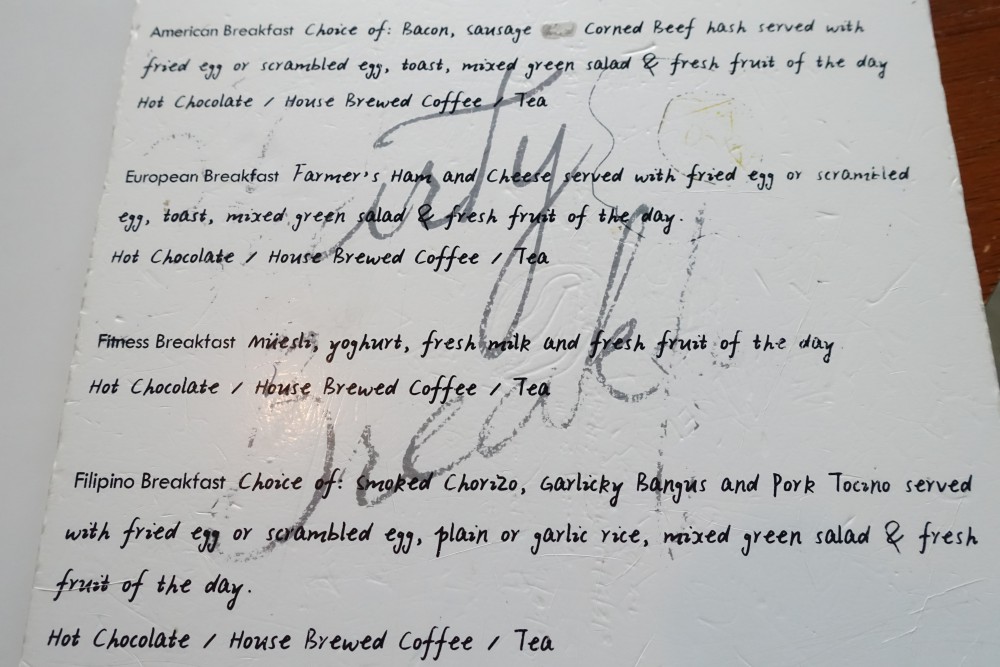 American Breakfast Choice of: Bacon, sausage Corned Beef hash served with
fried egg or scrambled egg, toast, mixed green salad & fresh fruit of the day
Hot Chocolate / House Brewed Coffee / Tea
European Breakfast Farmer's Ham and Cheese served with fried egg or scrambled
egg, toast, mixed green salad & fresh fruit of the day.
Hot Chocolate / House Brewed Coffee / Tea
Fitness Breakfast müesli, yoghurt, fresh milk and fresh fruit of the day
Hot Chocolate / House Brewed Coffee / Tea
Filipino Breakfast Choice of: Smoked Chorizo, Garlicky Bangus and Pork Tocino served
with fried egg or scrambled egg, plain or garlic rice, mixed green salad & fresh
fruit of the day.
Hot Chocolate / House Brewed Coffee / Tea